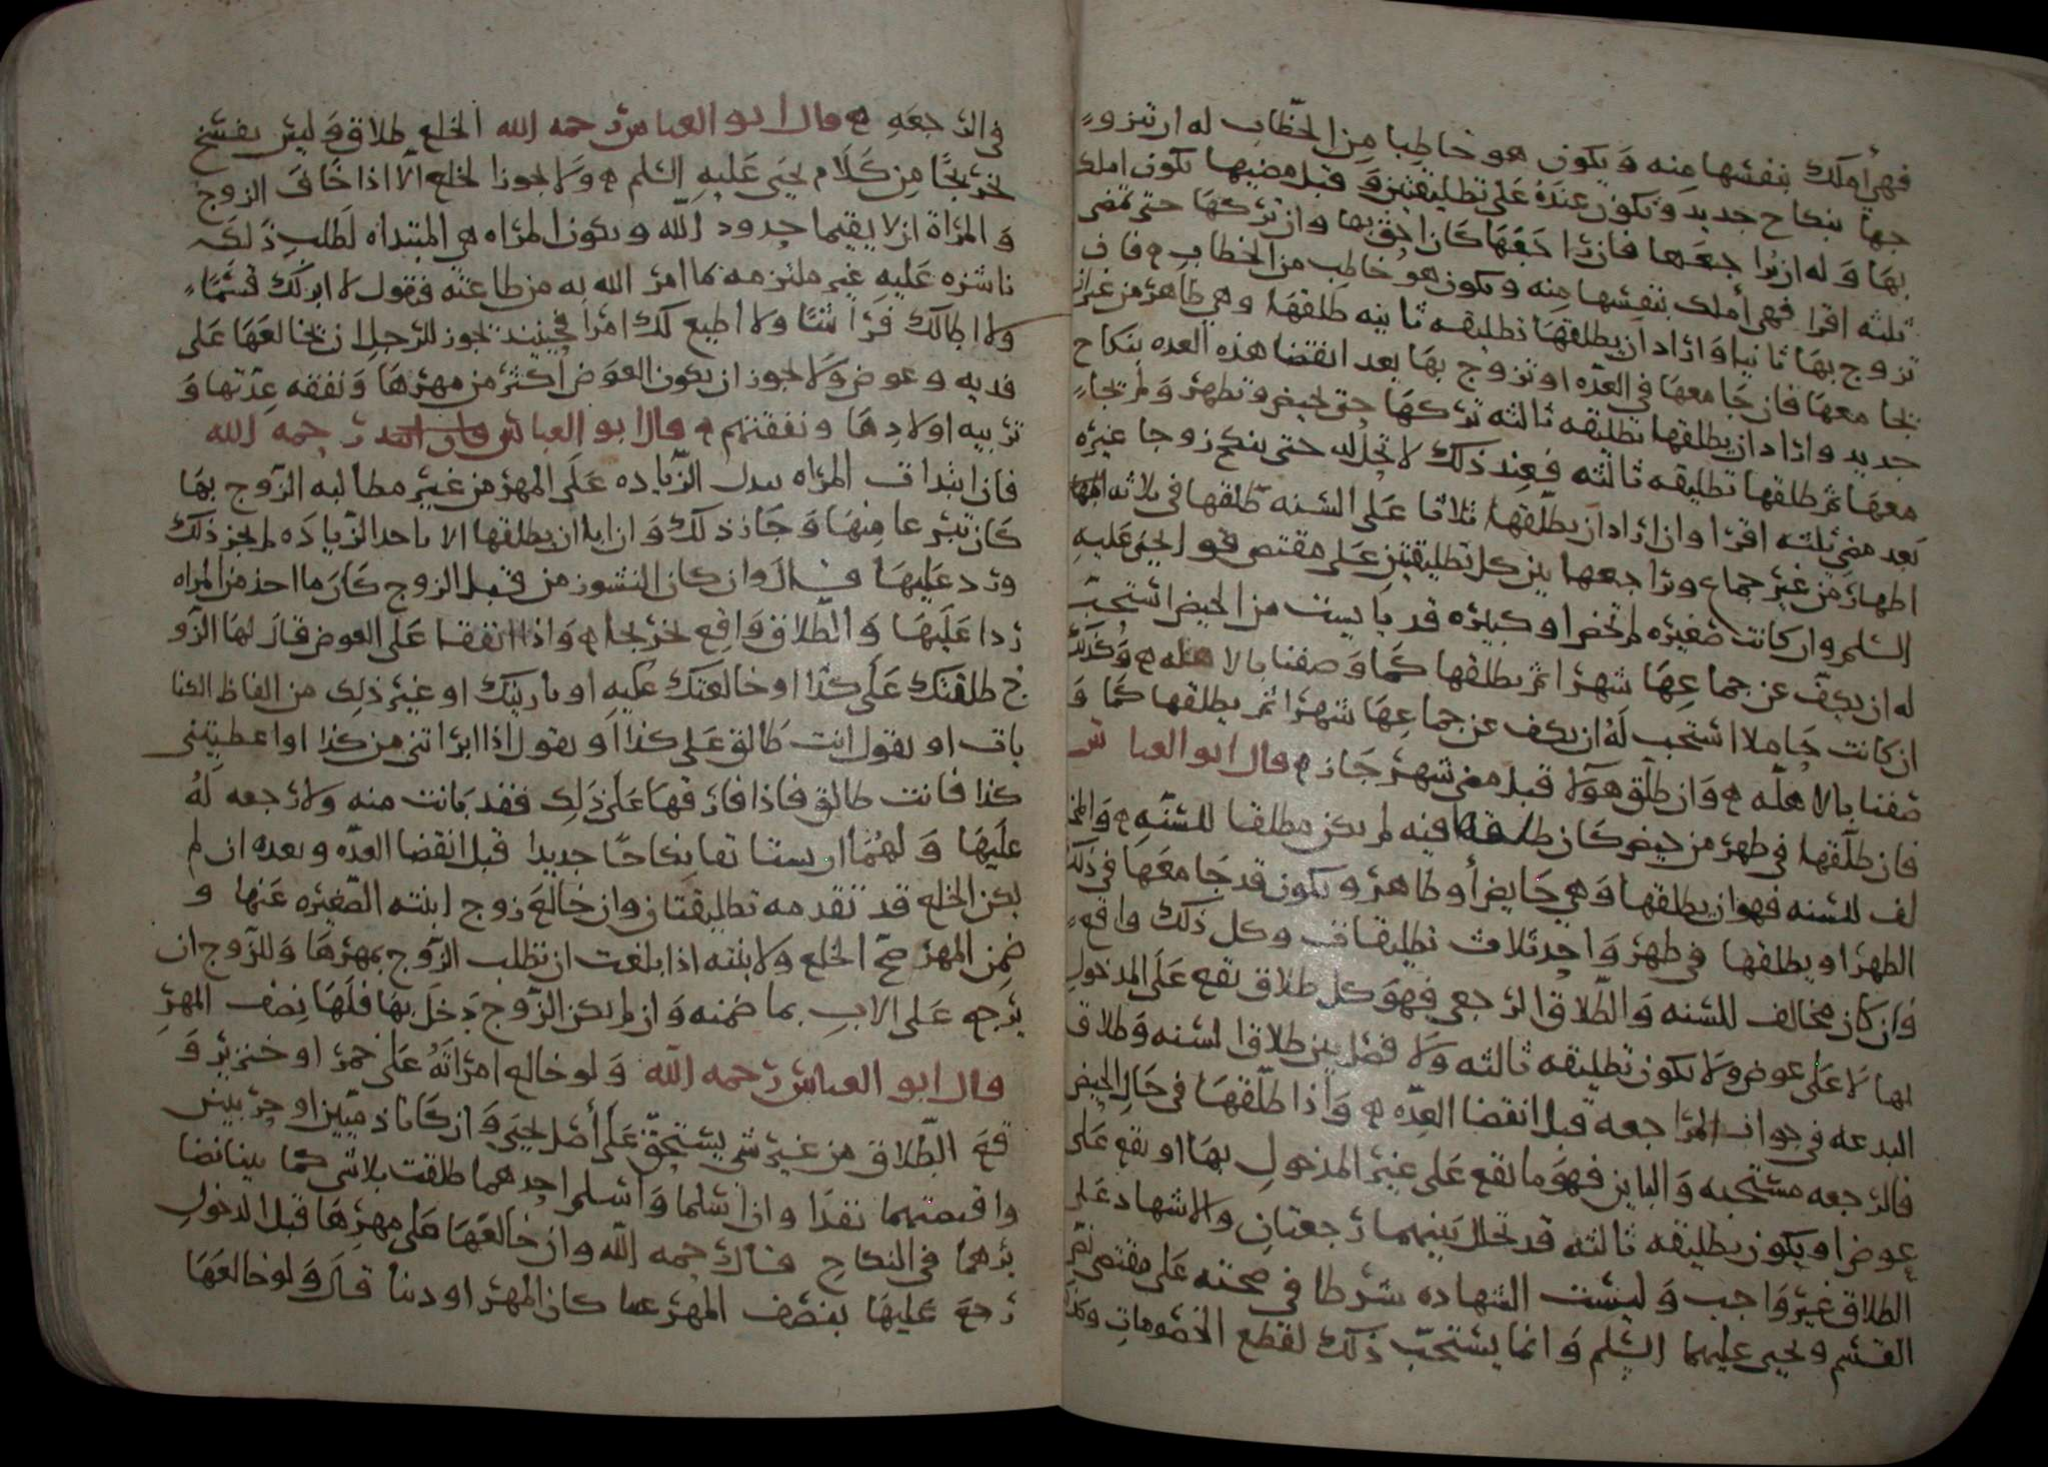 فهي أملك بنفسها منه ويكون هو خاطبا من الخطاب له ان تتزو
جها بنكاح جديد وتكون عنده على تطليقتين وقبل مضيها يكون املك
بها وله ان يراجعها فان راجعها كان احق بها وان تركها حتى تمضي
ثلثه اقرا فهي أملك بنفسها منه ويكون هو خاطب من الخطاب فان
تزوج بها ثانيا واراد ان يطلقها تطليقه ثانيه طلقها وهي طاهر من غير ان
يجامعها فان جامعها في العده او تزوج بها بعد انقضا هذه العده بنكاح
جديد واراد ان يطلقها تطليقه ثالثه تركها حتى تحيض وتطهر ولم يجا
معها ثم طلقها تطليقه ثالثه فعند ذلك لا تحل له حتى ينكح زوجا غيره
بعد مضي ثلثه اقرا وان اراد ان يطلقها ثلاثا على السنه طلقها في ثلاثه
اطهار من غير جماع وراجعها بين كل تطليقتين على مقتضى قول يحيى عليه
السلم وان كانت صغيره لم تحض او كبيره قد يايست من الحيض استحب
له ان يكف عن جماعها شهرا ثم يطلقها كما وصفنا بالاهله وكذلك
ان كانت حاملا استحب له ان يكف عن جماعها شهرا ثم يطلقها كما و
صفنا بالاهله وان طلق هولا قبل مضي شهر جاز قال ابو العباس
فان طلقها في طهر من حيض كان طلقها فيه لم يكن مطلقا للسنه والمخا
لف للسنه فهو ان يطلقها وهي حايض أو طاهر ويكون قد جامعها في ذلك
الطهر او يطلقها في طهر واحد ثلاث تطليقات وكل ذلك واقع
وان كان مخالف للسنه والطلاق الرجعي فهو كل طلاق تقع على المدخول
بها لا على عوض ولا يكون تطليقه ثالثه ولا فصل بين طلاق السنه وطلاق
البدعه في جواز المراجعه قبل انقضا العده واذا طلقها في حال الحيض
فالرجعه مستحبه والباين فهو ما تقع على غير المدخول بها او تقع على
عوض او يكون تطليقه ثالثه قد تخلل بينهما رجعتان والاشهاد على
الطلاق غير واجب وليست الشهاده شرطا في صحته على مقتضى نص
القسم ويحيى عليهما السلم وانما يستحب ذلك لقطع الخصومات
في الرجعه قال ابو العباس رحمه الله الخلع طلاق وليس بفسخ
تخريجا من كلام يحيى عليه السلم ولا يجوز الخلع الا اذا خاف الزوج
والمراة ان لا يقيما حدود الله ويكون المراه هي المبتداه لطلب ذلك
ناشزه عليه غير ملتزمه بما امر الله به من طاعته فتقول لا ابر لك قسما
ولا اطالك فراشا ولا اطيع لك امرا فحينيذ يجوز للرجل ان يخالعها على
فديه وعوض ولا يجوز ان يكون العوض أكثر من مهرها ونفقه عدتها و
تربيه اولادها ونفقتهم قال ابو العباس رحمه الله
فان ابتدات المراه ببذل الزياده على المهر من غير مطالبه الزوج بها
كان تبرعا منها وجاز ذلك وان ابا ان يطلقها الا باخذ الزياده لم يجز ذلك
ورد عليها قال وان كان النشوز من قبل الزوج كان ما اخذ من المراه
ردا عليها والطلاق واقع تخريجا واذا اتفقا على العوض قال لها الزو
ج طلقتك على كذا او خالعتك عليه او باريتك او غير ذلك من الفاظ الكنا
يات او يقول انت طالق على كذا أو يقول اذا ابراتني من كذا او اعطيتني
كذا فانت طالق فاذا فارقها على ذلك فقد بانت منه ولا رجعه له
عليها ولهما ان يستانفا نكاحا جديدا قبل انقضا العده وبعده ان لم
يكن الخلع قد تقدمه تطليقتان وان خالع زوج ابنته الصغيره عنها و
ضمن المهر صح الخلع ولابنته اذا بلغت ان تطلب الزوج بمهرها وللزوج ان
يرجع على الاب بما ضمنه وان لم يكن الزوج دخل بها فلها نصف المهر
قال ابو العباس رحمه الله ولو خالع امراته على خمر او خنزير و
قع الطلاق من غير شي يستحق على أصل يحيى وان كانا ذميين او حربيين
واقتضتهما نقدا وان اسلما واسلم احدهما طلقت بلا شي كما بينا نضا
يرهما في النكاح قال رحمه الله وان خالعها على مهرها قبل الدخول
رجع عليها بنصف المهر عينا كان المهر او دينا قال ولو خالعها